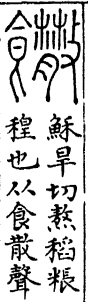 饊
穌旱切熬稻粻
䅣也从食散聲